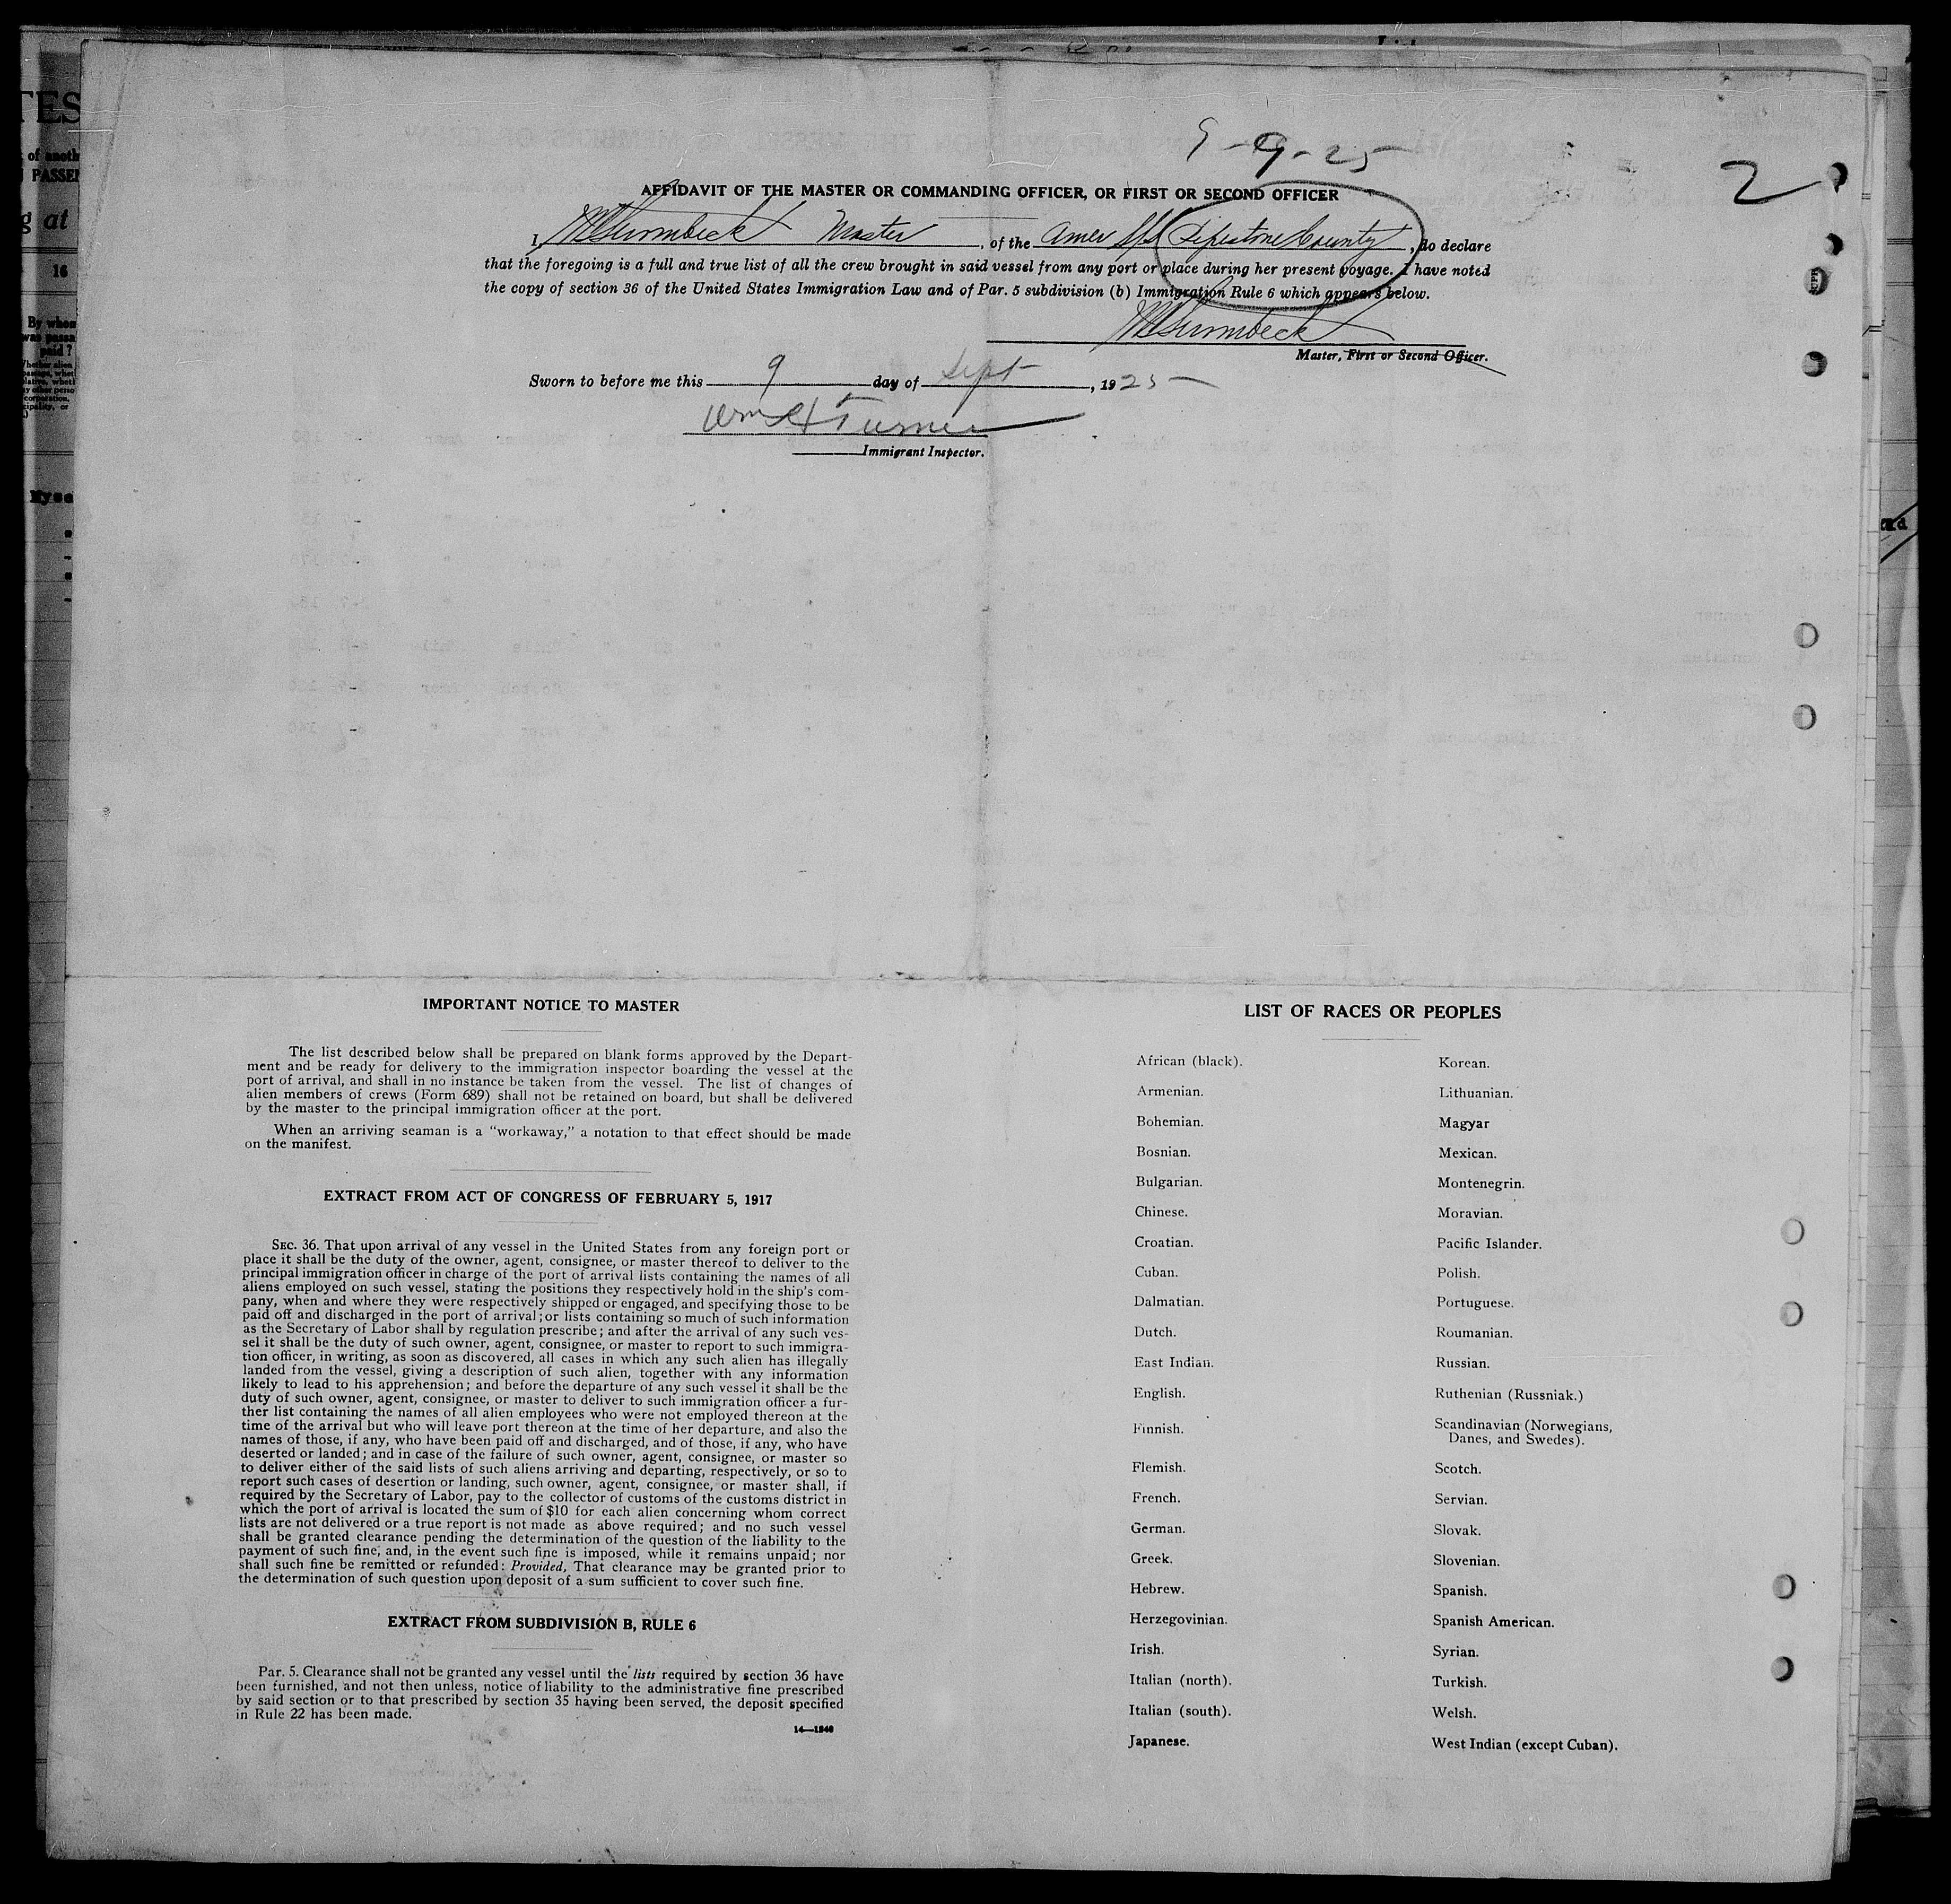 TES
of anoth
PASSEN
g at
16
By whom
was passa
paid?
9-9-25
2
AFFIDAVIT OF THE MASTER OR COMMANDING OFFICER, OR FIRST OR SECOND OFFICER
I, Master, of the Amer S/S Pipestone County, do declare
that the foregoing is a full and true list of all the crew brought in said vessel from any port or place during her present voyage. I have noted
the copy of section 36 of the United States Immigration Law and of Par. 5 subdivision (b) Immigration Rule 6 which appears below.
Master, First or Second Officer.
Sworn to before me this 9 day of Sept, 1925
Wm H Turner
Immigrant Inspector.
IMPORTANT NOTICE TO MASTER
The list described below shall be prepared on blank forms approved by the Depart-
ment and be ready for delivery to the immigration inspector boarding the vessel at the
port of arrival, and shall in no instance be taken from the vessel. The list of changes of
alien members of crews (Form 689) shall not be retained on board, but shall be delivered
by the master to the principal immigration officer at the port.
When an arriving seaman is a "workaway," a notation to that effect should be made
on the manifest.
EXTRACT FROM ACT OF CONGRESS OF FEBRUARY 5, 1917
SEC. 36. That upon arrival of any vessel in the United States from any foreign port or
place it shall be the duty of the owner, agent, consignee, or master thereof to deliver to the
principal immigration officer in charge of the port of arrival lists containing the names of all
aliens employed on such vessel, stating the positions they respectively hold in the ship's com-
pany, when and where they were respectively shipped or engaged, and specifying those to be
paid off and discharged in the port of arrival; or lists containing so much of such information
as the Secretary of Labor shall by regulation prescribe; and after the arrival of any such ves-
sel it shall be the duty of such owner, agent, consignee, or master to report to such immigra-
tion officer, in writing, as soon as discovered, all cases in which any such alien has illegally
landed from the vessel, giving a description of such alien, together with any information
likely to lead to his apprehension; and before the departure of any such vessel it shall be the
duty of such owner, agent, consignee, or master to deliver to such immigration officer a fur-
ther list containing the names of all alien employees who were not employed thereon at the
time of the arrival but who will leave port thereon at the time of her departure, and also the
names of those, if any, who have been paid off and discharged, and of those, if any, who have
deserted or landed; and in case of the failure of such owner, agent, consignee, or master so
to deliver either of the said lists of such aliens arriving and departing, respectively, or so to
report such cases of desertion or landing, such owner, agent, consignee, or master shall, if
required by the Secretary of Labor, pay to the collector of customs of the customs district in
which the port of arrival is located the sum of $10 for each alien concerning whom correct
lists are not delivered or a true report is not made as above required; and no such vessel
shall be granted clearance pending the determination of the question of the liability to the
payment of such fine, and, in the event such fine is imposed, while it remains unpaid; nor
shall such fine be remitted or refunded: Provided, That clearance may be granted prior to
the determination of such question upon deposit of a sum sufficient to cover such fine.
EXTRACT FROM SUBDIVISION B, RULE 6
Par. 5. Clearance shall not be granted any vessel until the lists required by section 36 have
been furnished, and not then unless, notice of liability to the administrative fine prescribed
by said section or to that prescribed by section 35 having been served, the deposit specified
in Rule 22 has been made.
14—1240
LIST OF RACES OR PEOPLES
African (black).
Armenian.
Bohemian.
Bosnian.
Bulgarian.
Chinese.
Croatian.
Cuban.
Dalmatian.
Dutch.
East Indian.
English.
Finnish.
Flemish.
French.
German.
Greek.
Hebrew.
Herzegovinian.
Irish.
Italian (north).
Italian (south).
Japanese.
Korean.
Lithuanian.
Magyar
Mexican.
Montenegrin.
Moravian.
Pacific Islander.
Polish.
Portuguese.
Roumanian.
Russian.
Ruthenian (Russniak.)
Scandinavian (Norwegians,
Danes, and Swedes).
Scotch.
Servian.
Slovak.
Slovenian.
Spanish.
Spanish American.
Syrian.
Turkish.
Welsh.
West Indian (except Cuban).